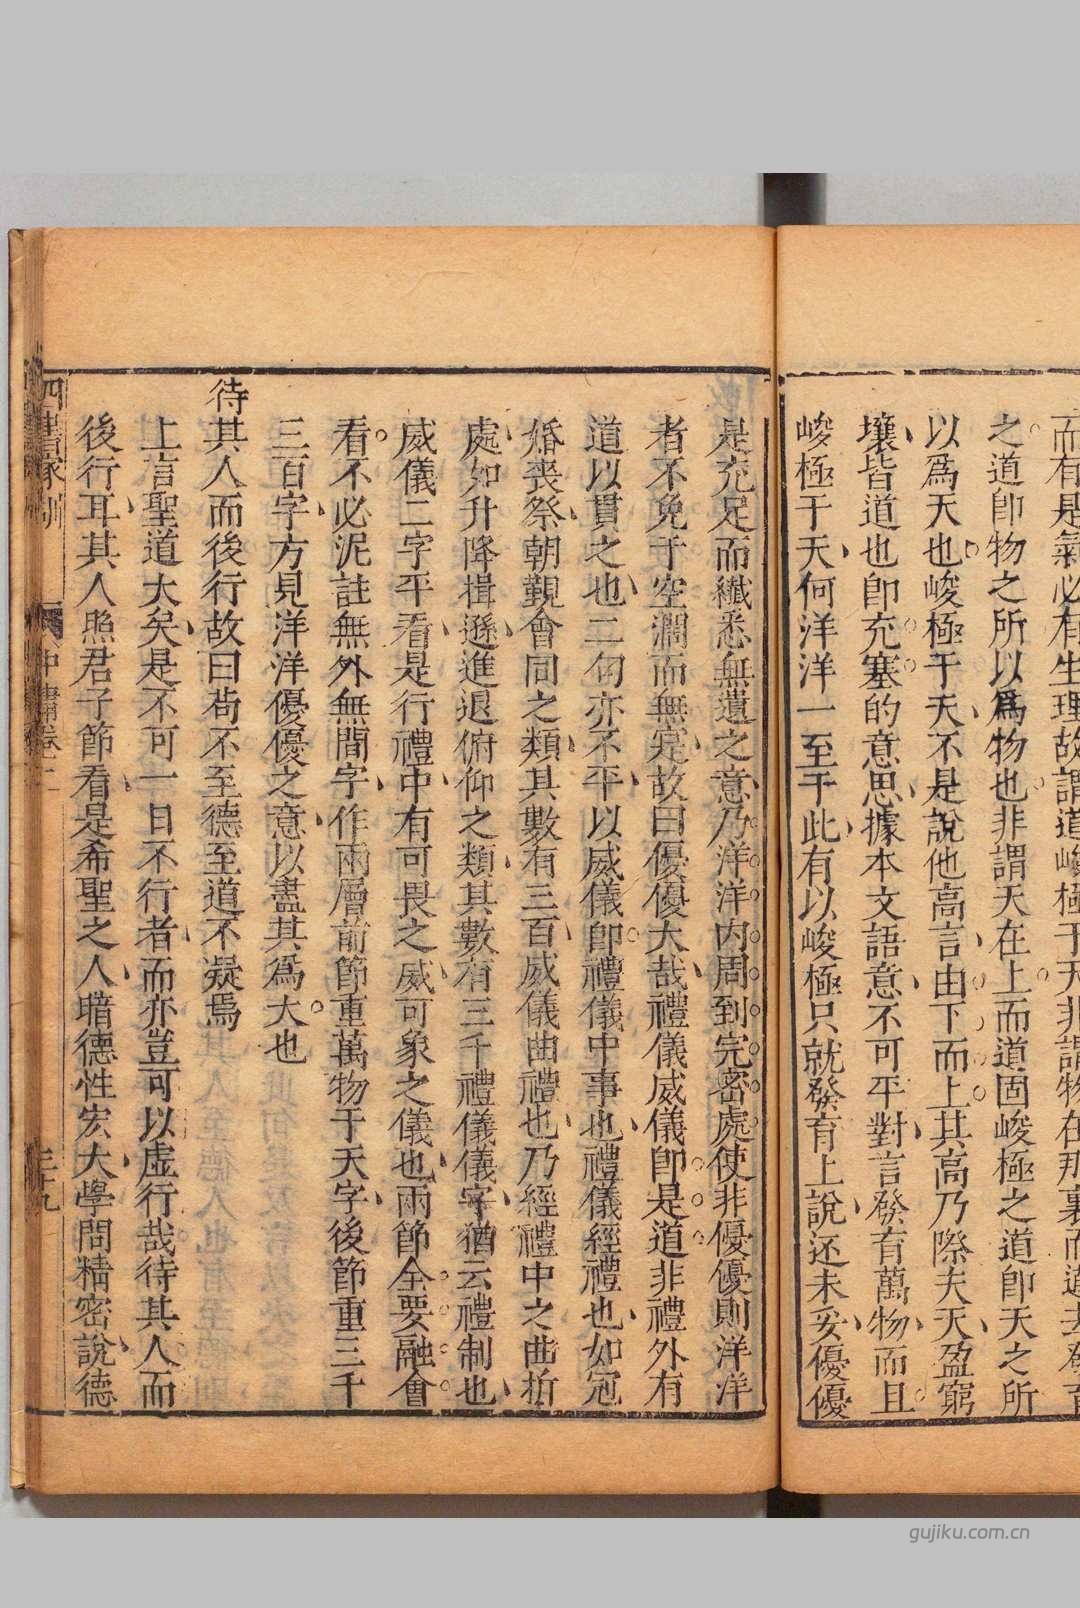 而有是氣必有生理故謂道峻極于天非謂物在那裏而道去發育
之道卽物之所以爲物也非謂天在上而道固峻極之道卽天之所
以爲天也峻極于天不是說他高言由下而上其高乃際夫天盈窮
壤皆道也卽充塞的意思據本文語意不可平對言發育萬物而且
峻極于天何洋洋一至于此有以峻極只就發育上說还未妥優優
是充足而纖悉無遺之意乃洋洋內周到完密處使非優優則洋洋
者不免于空濶而無寔故曰優優大哉禮儀威儀卽是道非禮外有
道以貫之也二句亦不平以威儀卽禮儀中事也禮儀經禮也如冠
婚喪祭朝覲會同之類其數有三百威儀曲禮也乃經禮中之曲折
處如升降揖遜進退俯仰之類其數有三千禮儀儀字猶云禮制也
威儀二字平看是行禮中有可畏之威可象之儀也兩節全要融會
看不必泥註無外無間字作兩層前節重萬物于天字後節重三千
三百字方見洋洋優優之意以盡其爲大也
待其人而後行故曰苟不至德至道不凝焉
上言聖道大矣是不可一日不行者而亦豈可以虛行哉待其人而
後行耳其人照君子節看是希聖之人暗德性宏大學問精密說德
中庸卷二
三十九
gujiku.com.cn